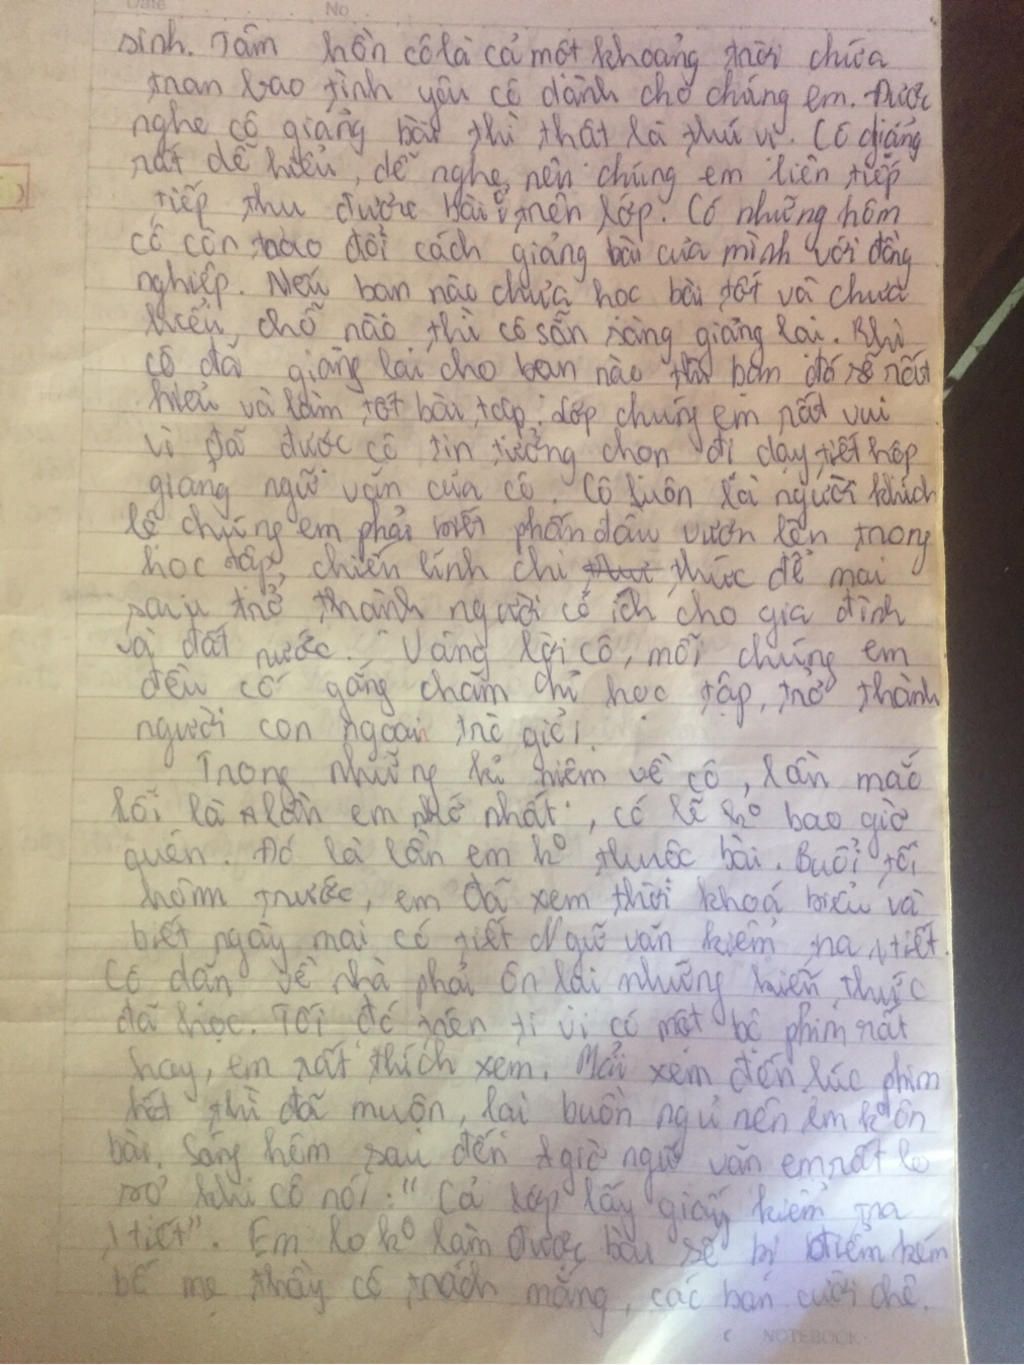 Date No
sinh. Tâm hồn cô là cả một khoảng trời chứa
tran bao tình yêu cô dành cho chúng em. Được
nghe cô giảng bài thì thật là thú vị. Cô giảng
rất dễ hiểu, dễ nghe, nên chúng em liên tiếp
tiếp thu được bài ở trên lớp. Có những hôm
cô còn trao đổi cách giảng bài của mình với đồng
nghiệp. Nếu bạn nào chưa học bài tốt và chưa
hiểu, chỗ nào thì cô sẵn sàng giảng lại. Khi
cô đã giảng lại cho bạn nào thì bạn đó sẽ rất
hiểu và làm tốt bài tập. Lớp chúng em rất vui
vì đã được cô tin tưởng chọn đi dạy tiết hôp
giảng ngữ văn của cô. Cô luôn là người khích
lệ chúng em phải biết phấn đấu vươn lên trong
học tập, chiến lĩnh chi thức để mai
sau trở thành người có ích cho gia đình
và đất nước. Vâng lời cô, mỗi chúng em
đều cố gắng chăm chỉ học tập, trở thành
người con ngoan trò giỏi.
Trong những kỉ niệm về cô, lần mắc
lỗi là lần em nhớ nhất, có lẽ k° bao giờ
quên. Đó là lần em k° thuộc bài. Buổi tối
hôm trước, em đã xem thời khoá biểu và
biết ngày mai có tiết Ngữ văn kiểm tra 1 tiết.
Cô dặn về nhà phải ôn lại những kiến thức
đã học. Tối đó trên ti vi có một bộ phim rất
hay, em rất thích xem. Mải xem đến lúc phim
hết thì đã muộn, lại buồn ngủ nên em k° ôn
bài. Sáng hôm sau đến giờ ngữ văn em rất lo
sợ khi cô nói: "Cả lớp lấy giấy kiểm tra
1 tiết". Em lo k° làm được bài sẽ bị điểm kém
bố mẹ thầy cô trách mắng, các bạn cười chê.
NOTEBOOK